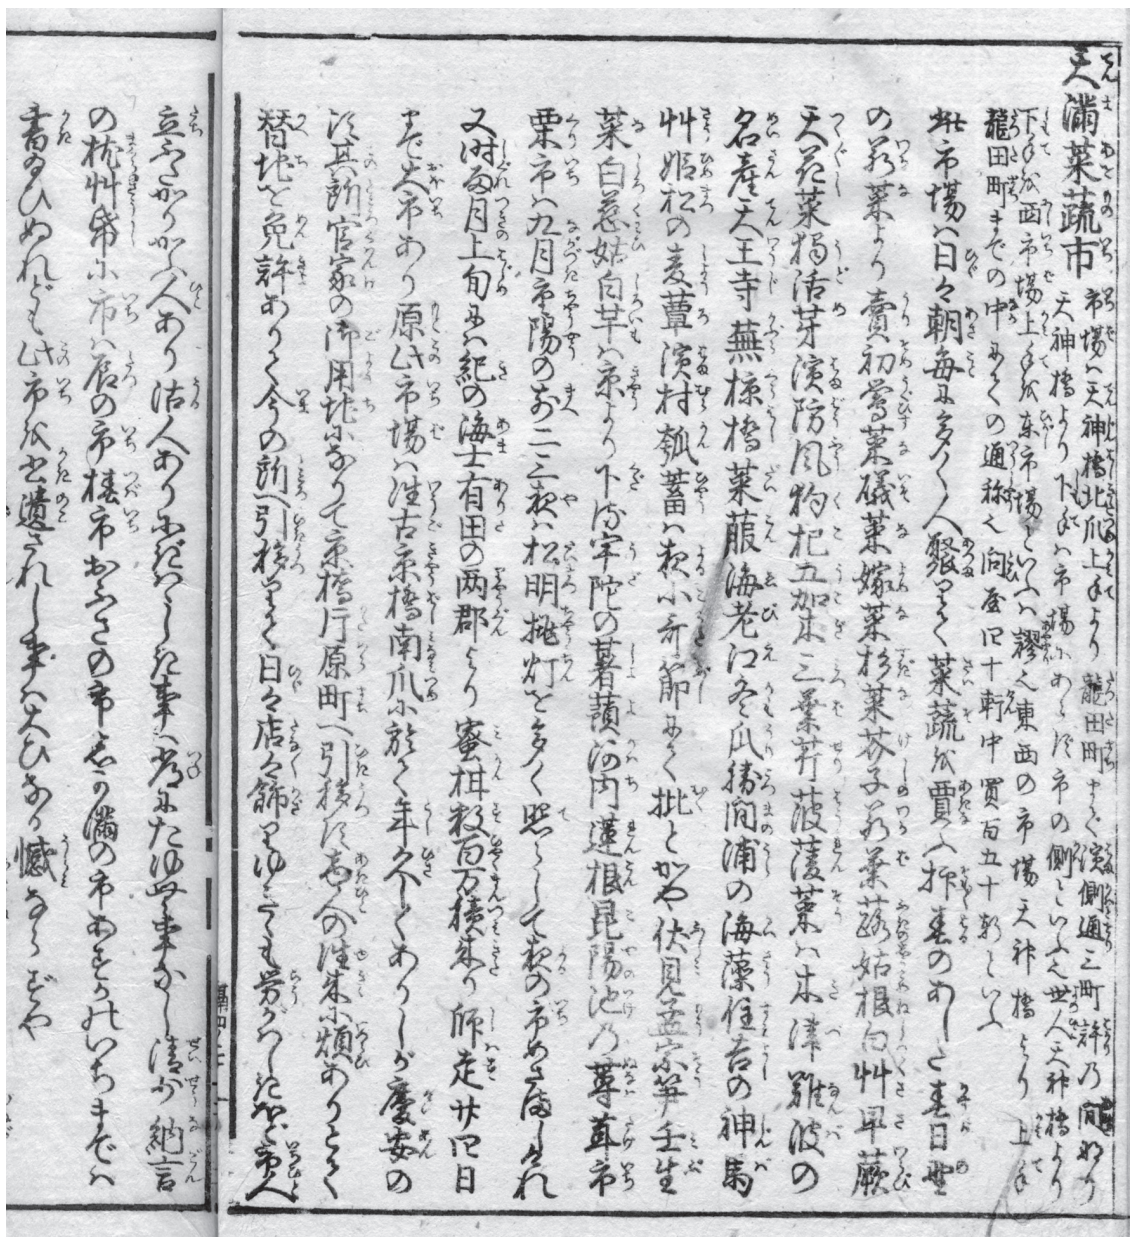 天満菜蔬市 市場ハ天神橋北爪上手より龍田町まで濱側通三町許の間なり
天神橋より下手ハ市場にあらず市の側といふ世人天神橋より上手
下手を西市場上手を東市場といふハ謬也東西の市場天神橋より
龍田町までの中にての通称也問屋四十軒中買百五十軒といふ
此市場ハ日々朝毎に多くの人聚りて菜蔬を買ふ抑春のあした春日野
の若菜より賣初鶯菜磯菜嫁菜杉菜芥子若葉蕗姑根白艸早蕨
天花菜獨活芽濱防風枸杞五加木三葉芹菠薐菜ハ木津難波の
名産天王寺蕪椋橋菜菔海老江冬瓜勝間浦の海藻住吉の神馬
艸姫松の麦蕈濱村瓠蓄ハ夜小音節にて批とかや伏見孟宗笋壬生
菜白慈姑白芋ハ京より下る宇陀の署蕷河内蓮根昆陽池の蓴茸市
栗市ハ九月市陽の前二三夜ハ松明挑灯を多く照らして夜の市めざましけれ
又時雨月上旬にハ紀の海士有田の両郡より蜜柑数百万積来り師走廿四日
まで大市あり原此市場ハ往古京橋南爪に於て年久しくありしが慶安の
頃其所官家の御用地になりて京橋片原町へ引移す商人の往来に煩ありとて
替地を免許ありて今の所へ引移りて日々店々飾りゆきゝも労がハしきほど商人
立こみかふ人あり沽人ありにぎハしき事ハ常にたゆる事なし清少納言
の枕艸帋に市ハ辰の市椿市おふさの市しかまの市あすかのいちまでハ
書給ひぬれども此市を書遺されし事ハ大ひなる憾ならずや